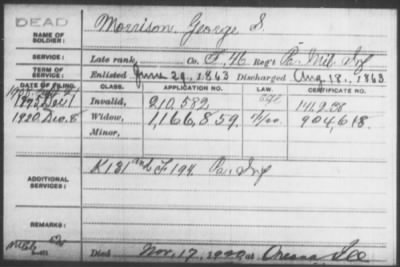 DEAD
NAME OF SOLDIER: Morrison, George S.
SERVICE: Late rank, Co. F, 46 Reg't Pa. Mil. Inf
TERM OF SERVICE: Enlisted June 29, 1863 Discharged Aug 18, 1863
DATE OF FILING. CLASS. APPLICATION NO. LAW. CERTIFICATE NO.
Invalid, 210,582
1920 Dec. 8 Widow, 1,166,859. 904,618.
Minor,
ADDITIONAL SERVICES: K 131 and F 194 Pa. Inf
REMARKS:
Died Nov. 17, 1920, at